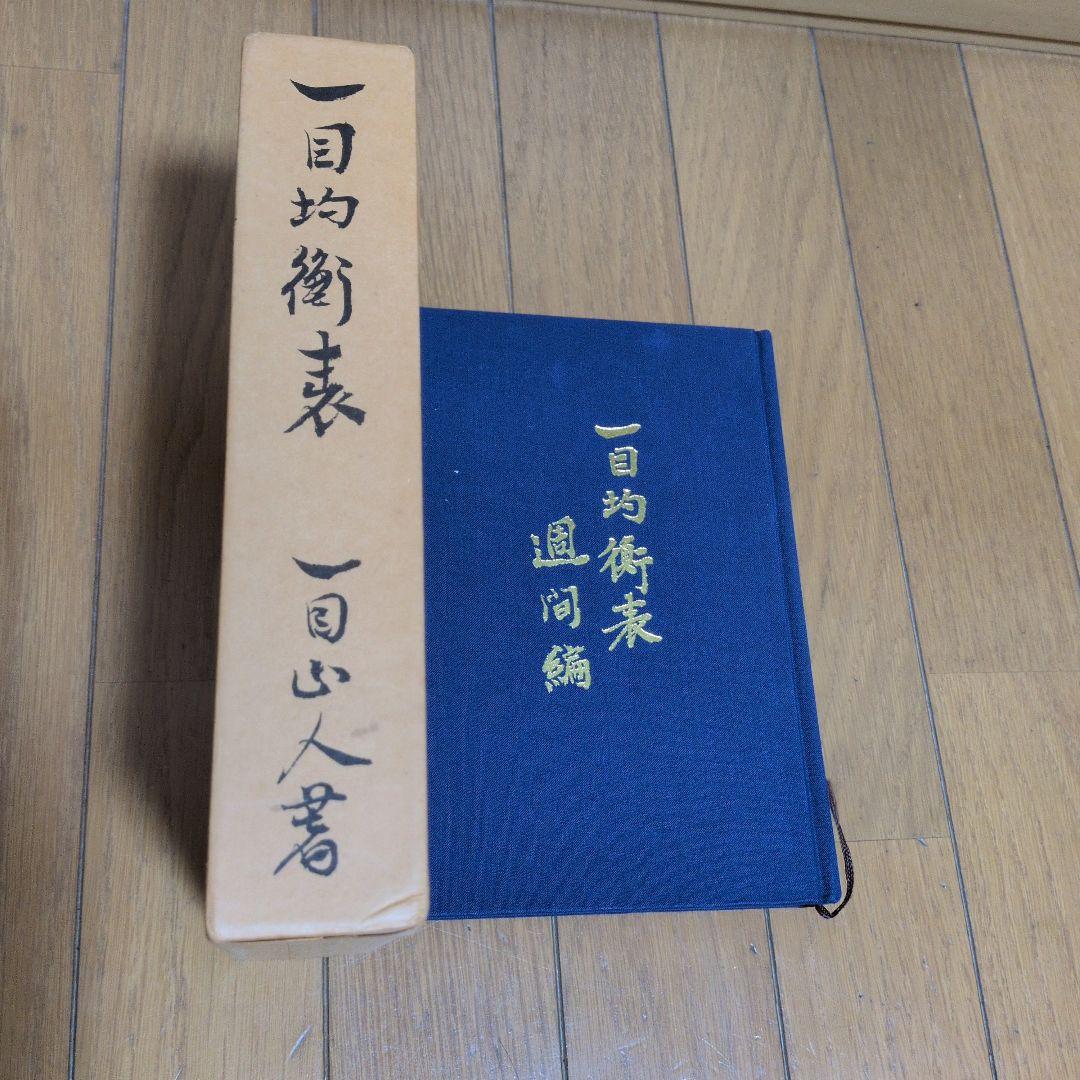 一目均衡表
一目山人著
一目均衡表
週間編